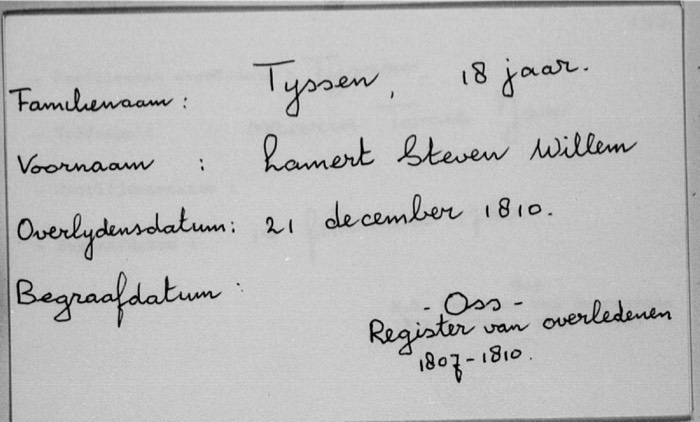 Familienaam : Tyssen, 18 jaar.
Voornaam : Lamert Steven Willem
Overlydensdatum: 21 december 1810.
Begraafdatum :
- Oss -
Register van overledenen
1807-1810.